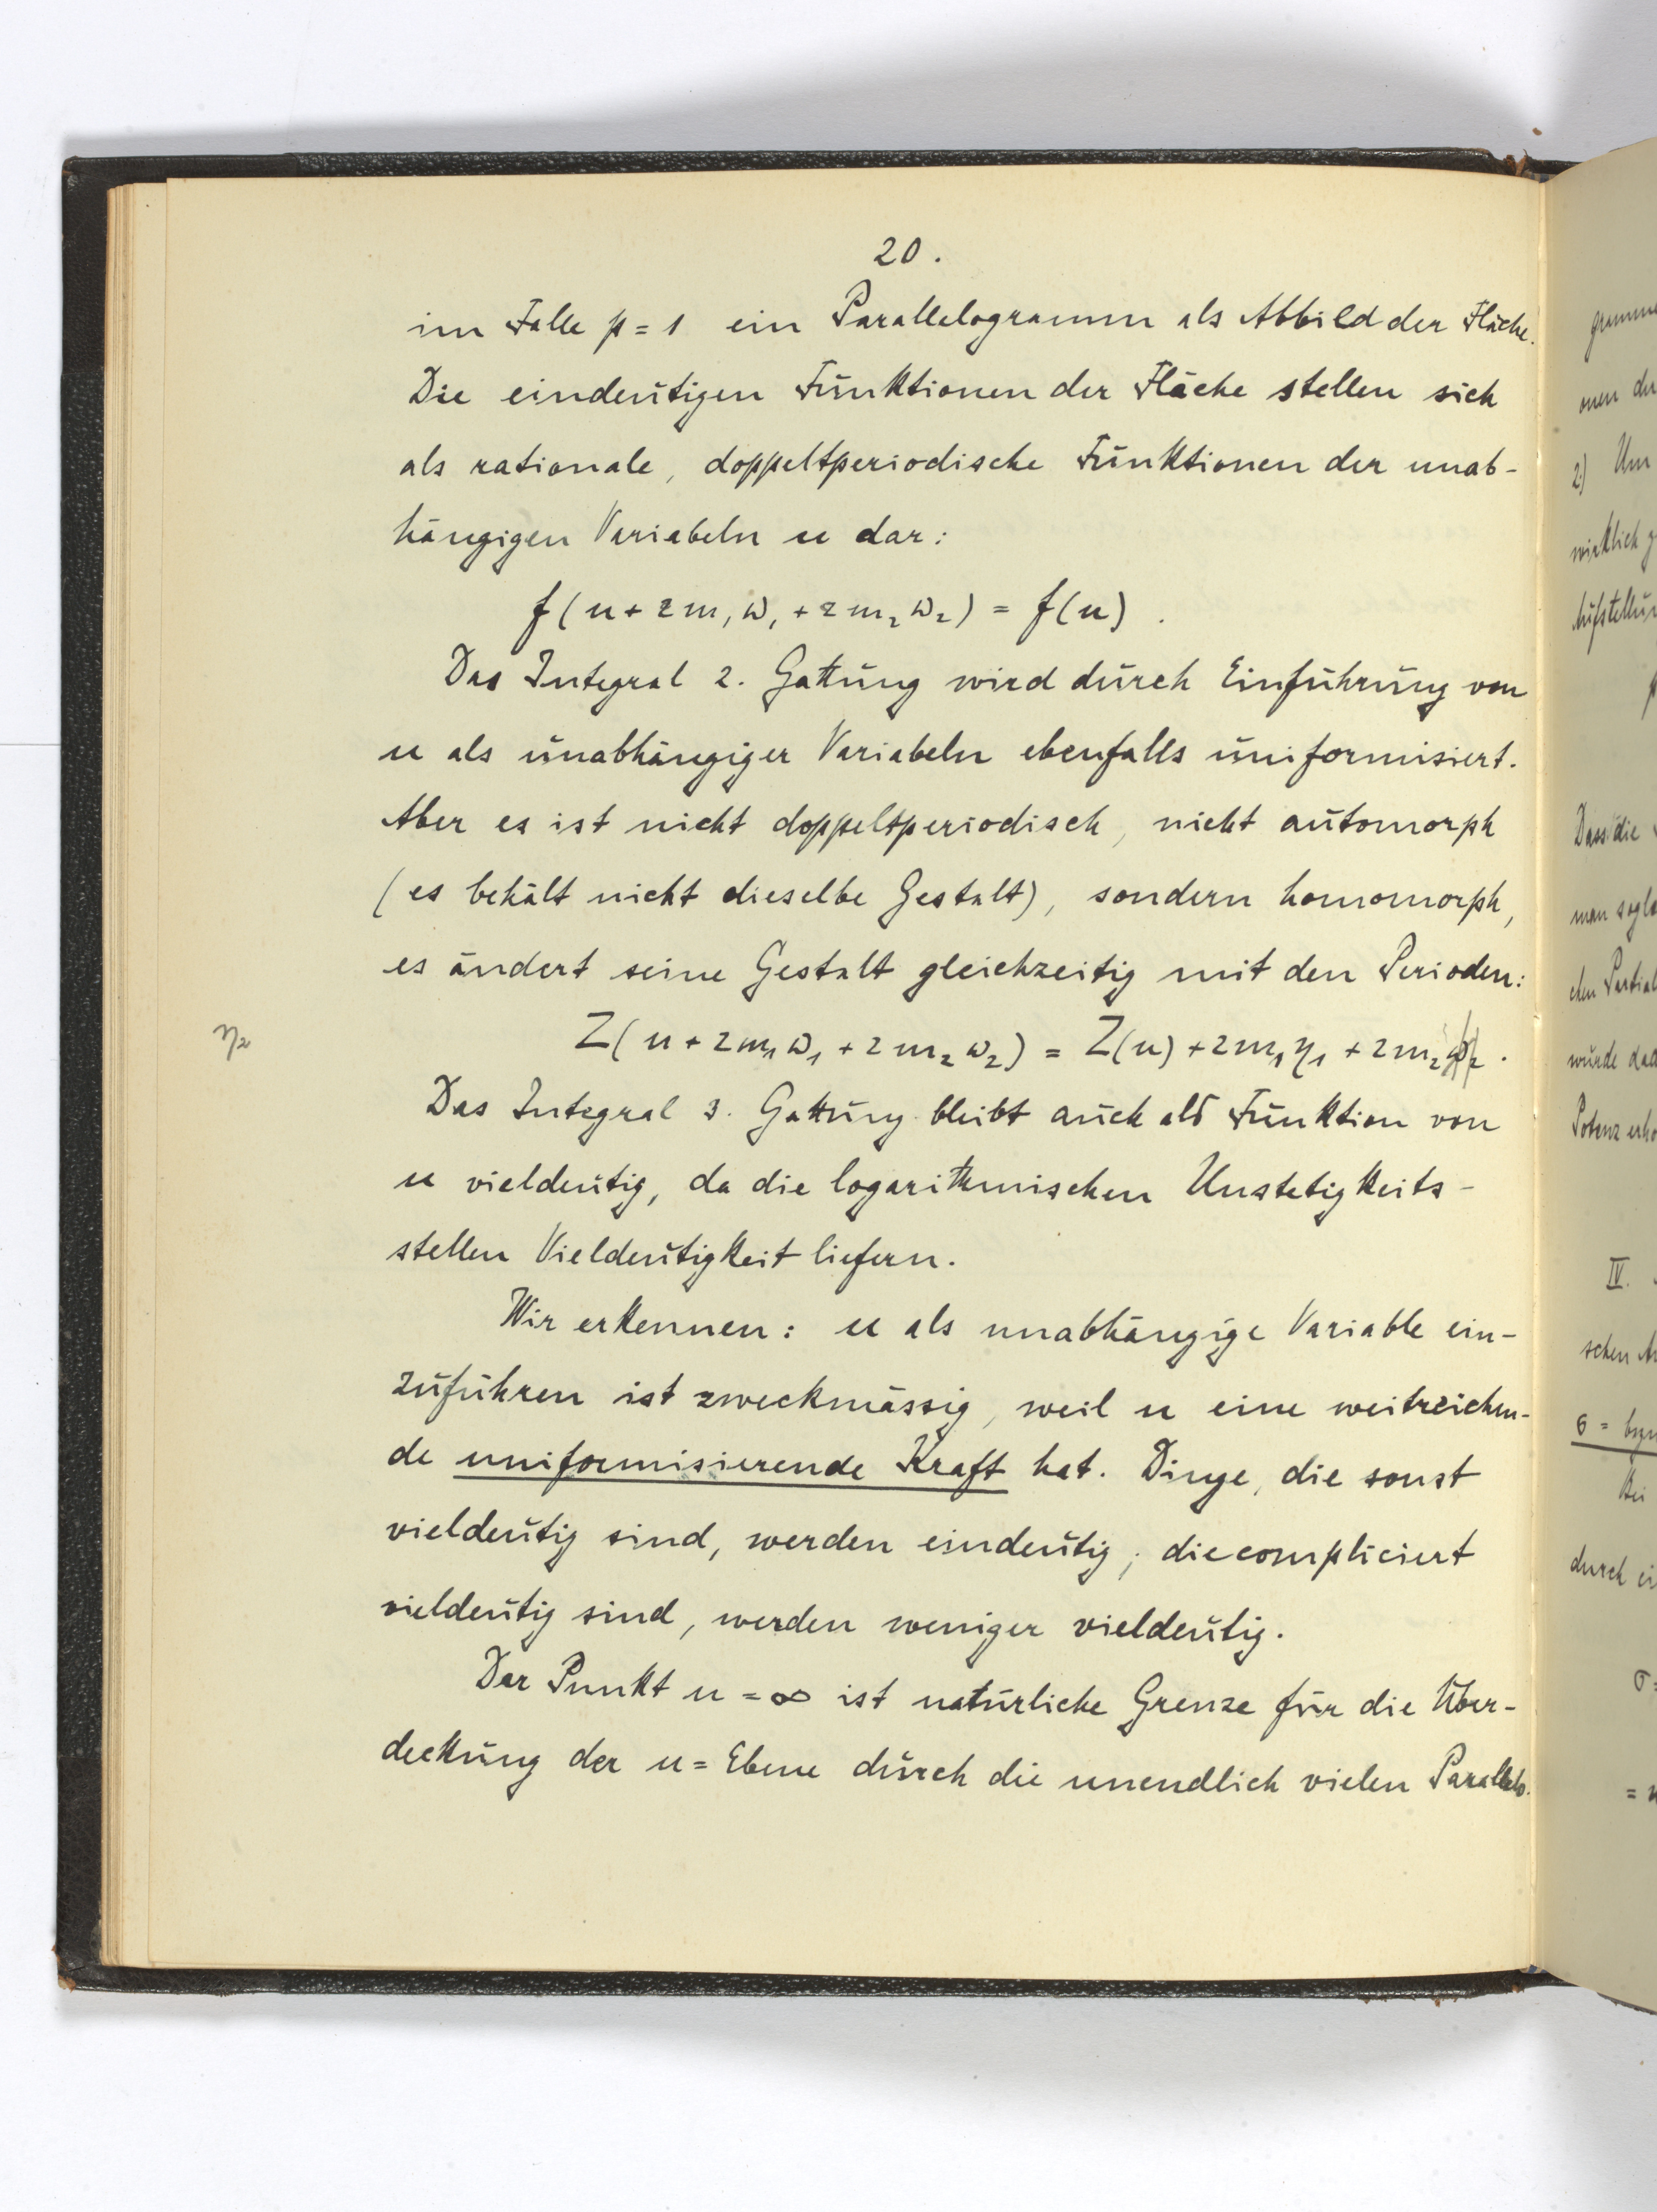 20.
im Falle p = 1 ein Parallelogramm als Abbild der Fläche.
Die eindeutigen Funktionen der Fläche stellen sich
als rationale, doppeltperiodische Funktionen der unab-
hängigen Variabeln u dar:
f(u + 2m₁ω₁ + 2m₂ω₂) = f(u).
Das Integral 2. Gattung wird durch Einführung von
u als unabhängiger Variabeln ebenfalls uniformisiert.
Aber es ist nicht doppeltperiodisch, nicht automorph
(es behält nicht dieselbe Gestalt), sondern homomorph,
es ändert seine Gestalt gleichzeitig mit den Perioden:
η₂
Z(u + 2m₁ω₁ + 2m₂ω₂) = Z(u) + 2m₁η₁ + 2m₂ω₂.
Das Integral 3. Gattung bleibt auch als Funktion von
u vieldeutig, da die logarithmischen Unstetigkeits-
stellen Vieldeutigkeit liefern.
Wir erkennen: u als unabhängige Variable ein-
zuführen ist zweckmässig, weil u eine weitreichen-
de uniformisierende Kraft hat. Dinge, die sonst
vieldeutig sind, werden eindeutig; die compliciert
vieldeutig sind, werden weniger vieldeutig.
Der Punkt u = ∞ ist natürliche Grenze für die Über-
deckung der u = Ebene durch die unendlich vielen Parallelo-
2) Um
wirklich
Dass die
wurde
IV.
durch